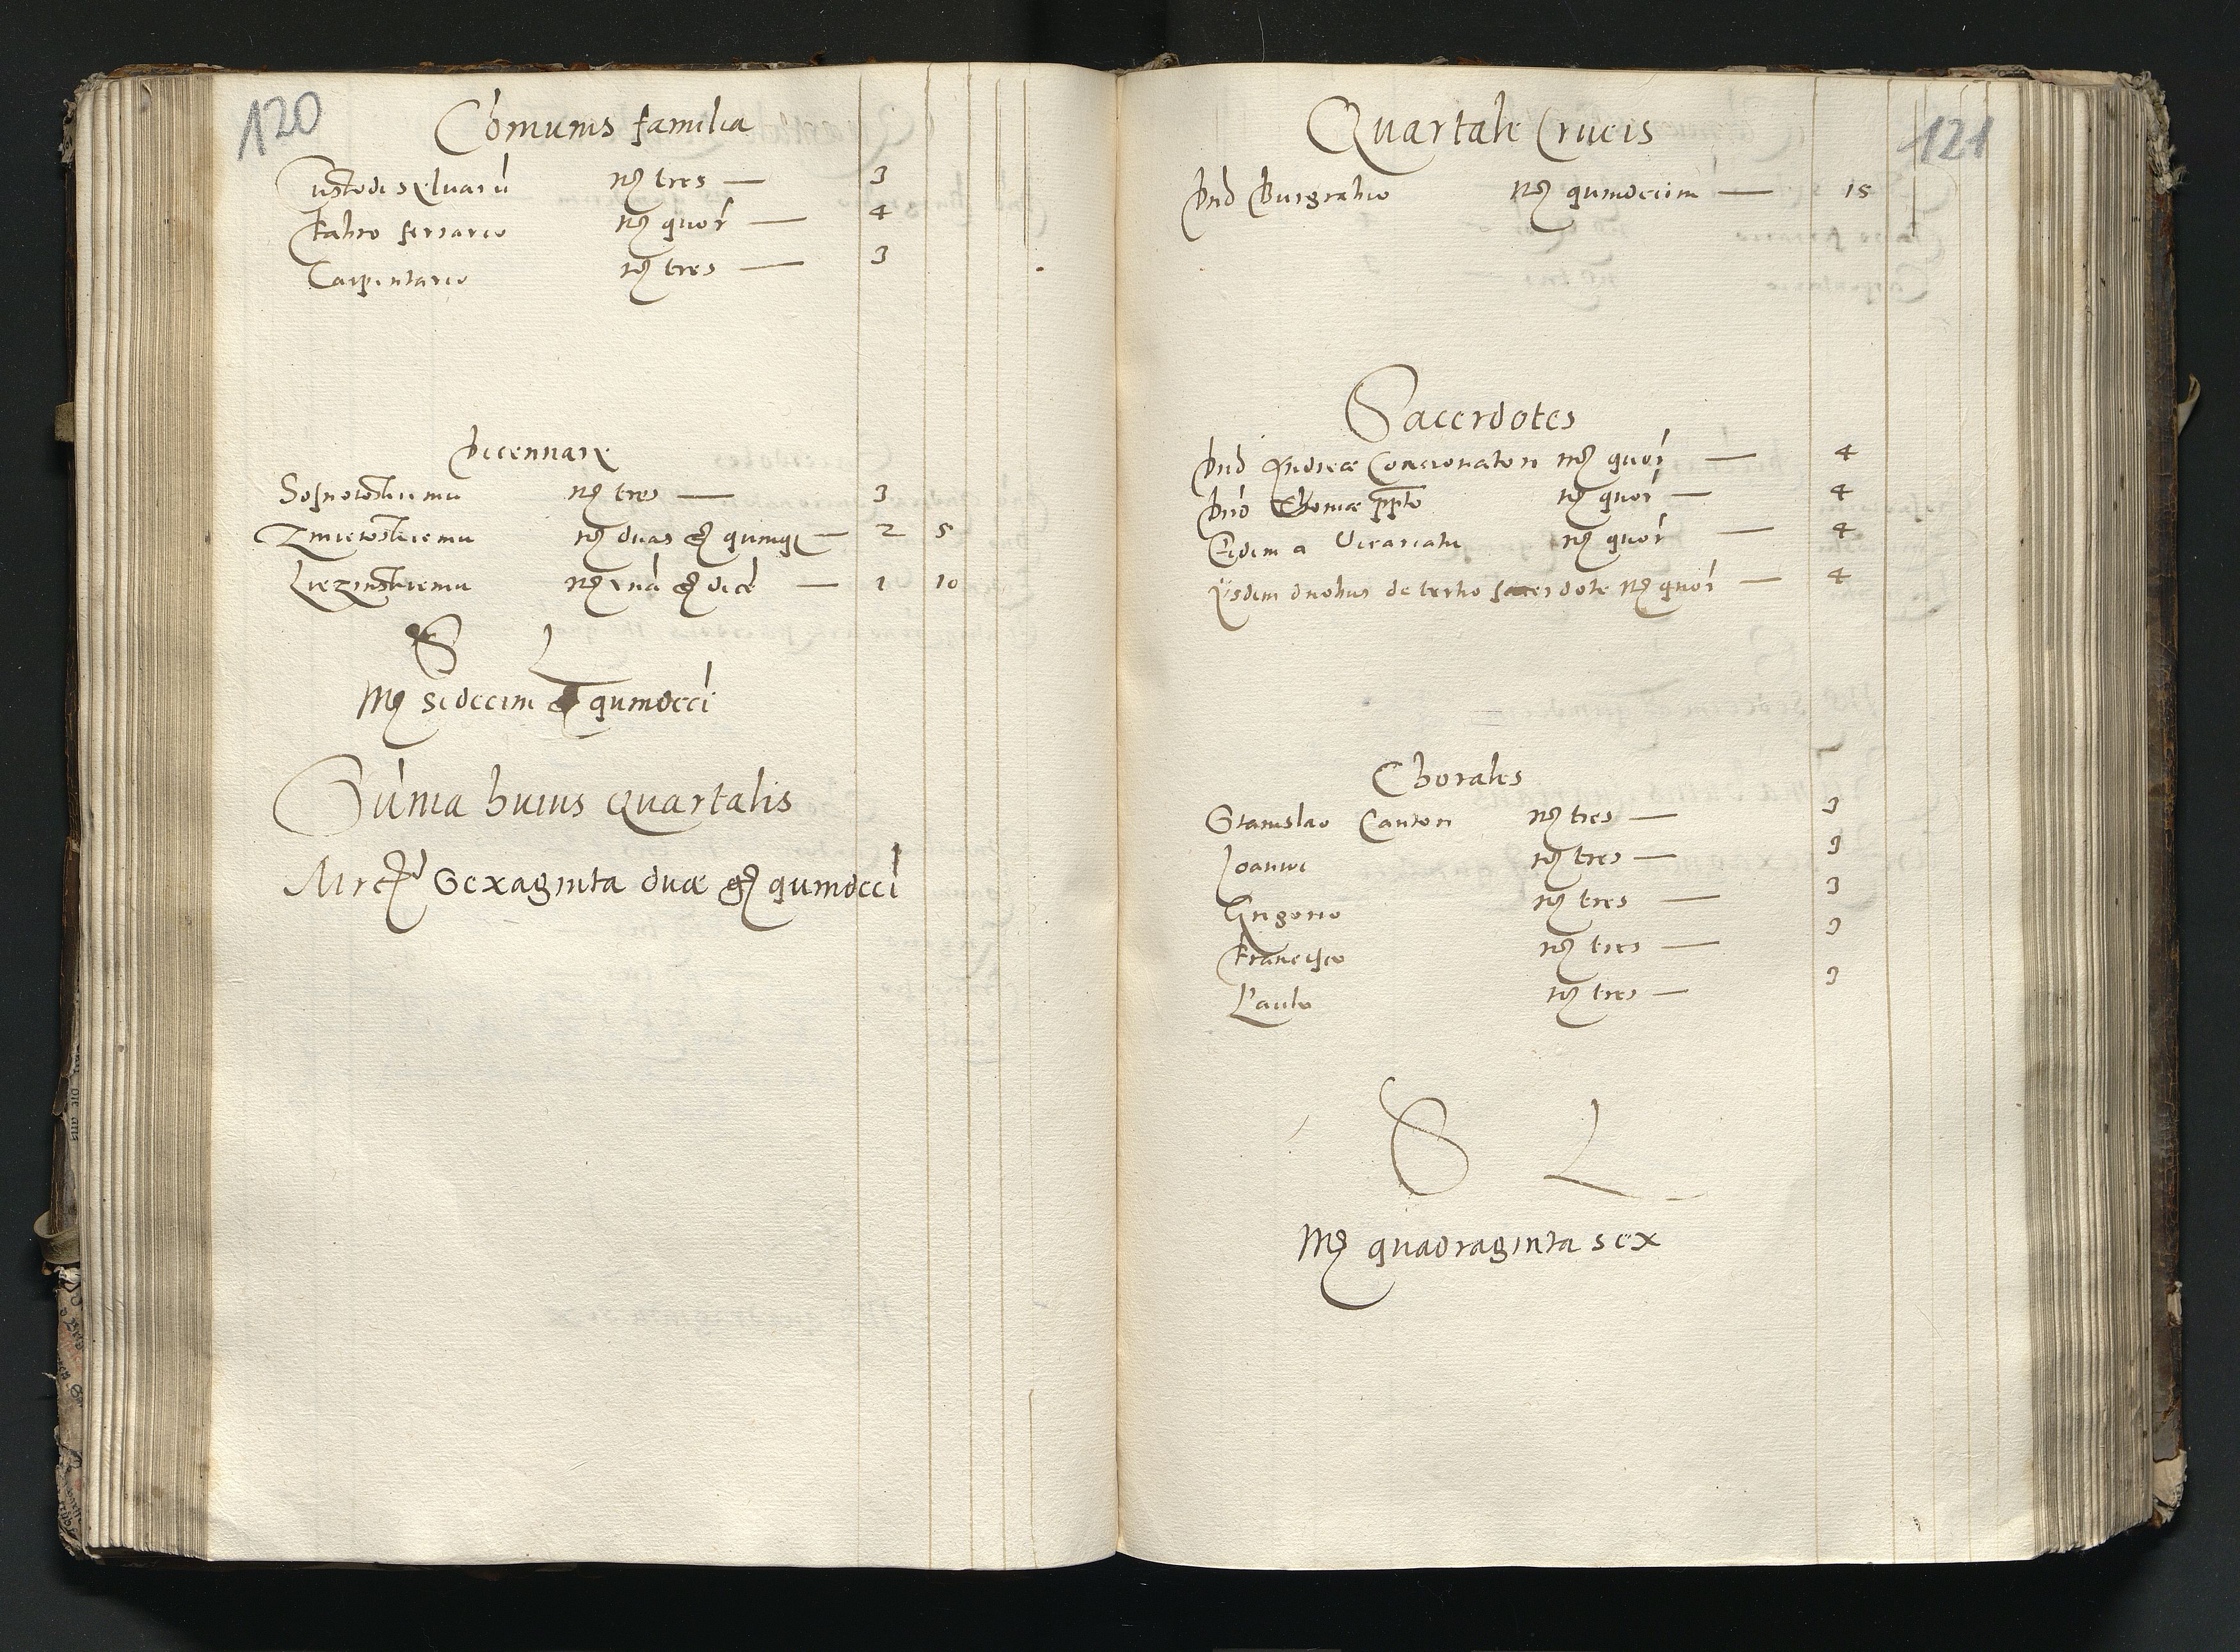 120
Comunis familia
Custodi sylvaru mrc tres — 3
Fabro ferrario mrc quor — 4
Carpentario mrc tres — 3
Decennarii
Sosnowskiemu mrc tres — 3
Zmiewskiemu mrc duas gr quinq — 2 5
Brezinskiemu mrc una gr dece — 1 10
S L
Mrc sedecim gr quindeci
Suma huius quartalis
Mrc Sexaginta duæ gr quindeci
121
Quartale Crucis
Dno Burgrabio mrc quindecim — 15
Sacerdotes
Dno Andreæ Concionatori mrc quor — 4
Dno Thomæ ppto mrc quor — 4
Eidem a Vicariatu mrc quor — 4
Iisdem duobus de tertio sacerdote mrc quor — 4
Chorales
Stanislao Cantori mrc tres — 3
Joanni mrc tres — 3
Gregorio mrc tres — 3
Francisco mrc tres — 3
Paulo mrc tres — 3
S L
Mrc quadraginta sex